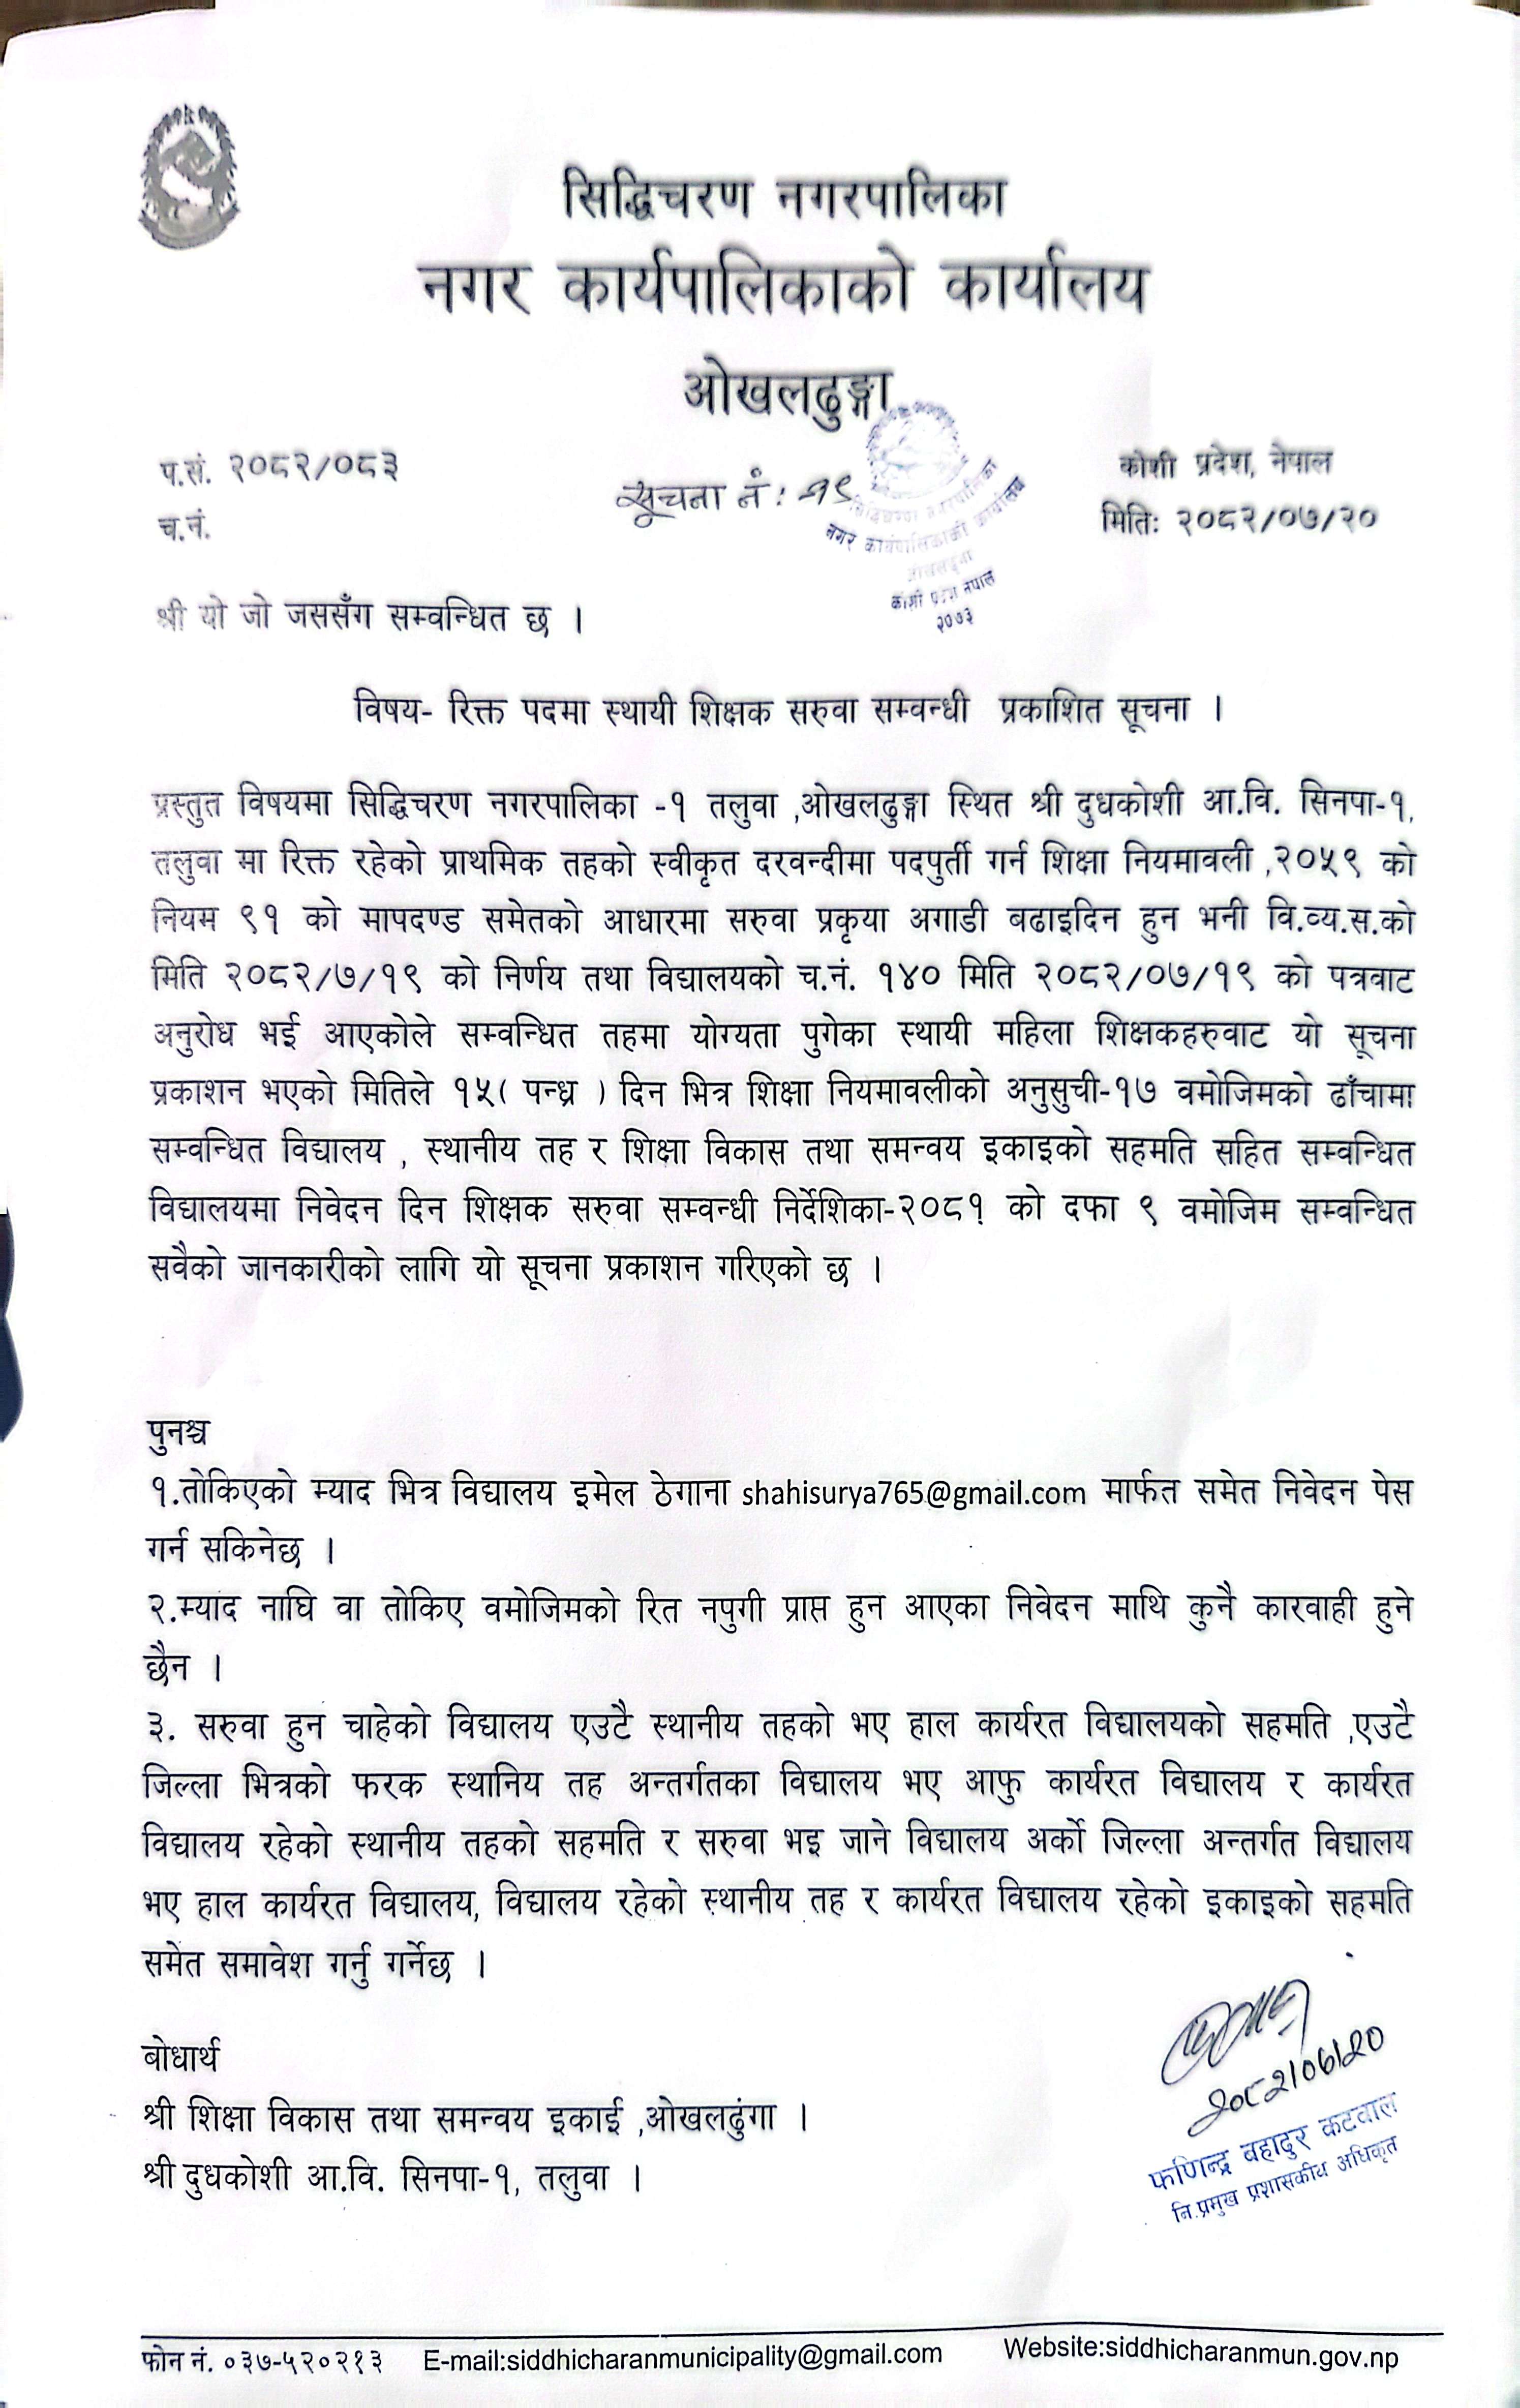 सिद्धिचरण नगरपालिका
नगर कार्यपालिकाको कार्यालय
ओखलढुङ्गा
प.सं. २०८२/०८३
सूचना नं: १९
कोशी प्रदेश, नेपाल
च.नं.
मितिः २०८२/०७/२०
सिद्धिचरण नगरपालिका
नगर कार्यपालिकाको कार्यालय
ओखलढुंगा
कोशी प्रदेश नेपाल
२०७३
श्री यो जो जससँग सम्वन्धित छ ।
विषय- रिक्त पदमा स्थायी शिक्षक सरुवा सम्वन्धी प्रकाशित सूचना ।
प्रस्तुत विषयमा सिद्धिचरण नगरपालिका -१ तलुवा ,ओखलढुङ्गा स्थित श्री दुधकोशी आ.वि. सिनपा-१,
तलुवा मा रिक्त रहेको प्राथमिक तहको स्वीकृत दरवन्दीमा पदपुर्ती गर्न शिक्षा नियमावली ,२०५९ को
नियम ९१ को मापदण्ड समेतको आधारमा सरुवा प्रकृया अगाडी बढाइदिन हुन भनी वि.व्य.स.को
मिति २०८२/७/१९ को निर्णय तथा विद्यालयको च.नं. १४० मिति २०८२/०७/१९ को पत्रवाट
अनुरोध भई आएकोले सम्वन्धित तहमा योग्यता पुगेका स्थायी महिला शिक्षकहरुवाट यो सूचना
प्रकाशन भएको मितिले १५( पन्ध्र ) दिन भित्र शिक्षा नियमावलीको अनुसुची-१७ वमोजिमको ढाँचामा
सम्वन्धित विद्यालय , स्थानीय तह र शिक्षा विकास तथा समन्वय इकाइको सहमति सहित सम्वन्धित
विद्यालयमा निवेदन दिन शिक्षक सरुवा सम्वन्धी निर्देशिका-२०८१ को दफा ९ वमोजिम सम्वन्धित
सवैको जानकारीको लागि यो सूचना प्रकाशन गरिएको छ ।
पुनश्च
१.तोकिएको म्याद भित्र विद्यालय इमेल ठेगाना shahisurya765@gmail.com मार्फत समेत निवेदन पेस
गर्न सकिनेछ ।
२.म्याद नाघि वा तोकिए वमोजिमको रित नपुगी प्राप्त हुन आएका निवेदन माथि कुनै कारवाही हुने
छैन ।
३. सरुवा हुन चाहेको विद्यालय एउटै स्थानीय तहको भए हाल कार्यरत विद्यालयको सहमति ,एउटै
जिल्ला भित्रको फरक स्थानिय तह अन्तर्गतका विद्यालय भए आफु कार्यरत विद्यालय र कार्यरत
विद्यालय रहेको स्थानीय तहको सहमति र सरुवा भइ जाने विद्यालय अर्को जिल्ला अन्तर्गत विद्यालय
भए हाल कार्यरत विद्यालय, विद्यालय रहेको स्थानीय तह र कार्यरत विद्यालय रहेको इकाइको सहमति
समेत समावेश गर्नु गर्नेछ ।
बोधार्थ
श्री शिक्षा विकास तथा समन्वय इकाई ,ओखलढुंगा ।
श्री दुधकोशी आ.वि. सिनपा-१, तलुवा ।
२०८२/०७/२०
फणिन्द्र बहादुर कटवाल
नि.प्रमुख प्रशासकीय अधिकृत
फोन नं. ०३७-५२०२१३ E-mail:siddhicharanmunicipality@gmail.com Website:siddhicharanmun.gov.np